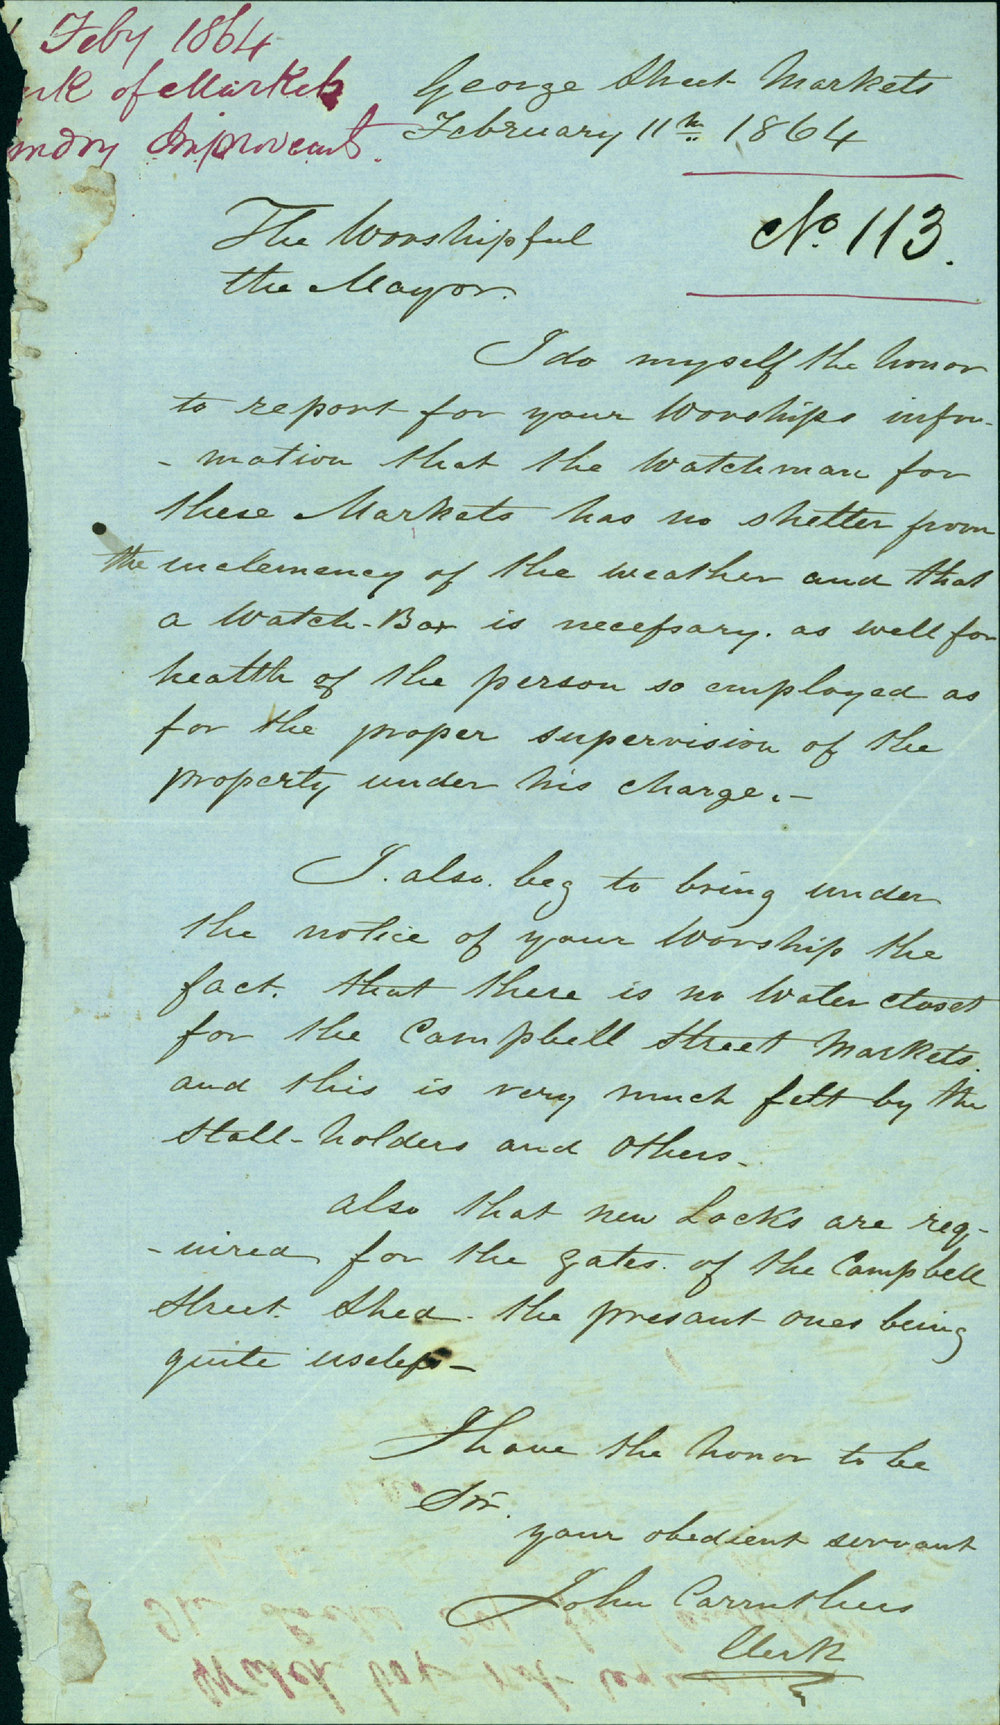 Feby 1864
rk of Markets
ndry Improvemts.
George Street Markets
February 11th 1864
No. 113.
The Worshipful
the Mayor.
I do myself the honor
to report for your Worships infor-
-mation that the Watchman for
these Markets has no shelter from
the inclemency of the weather and that
a Watch-Box is necessary. as well for
health of the person so employed as
for the proper supervision of the
property under his charge.-
I. also. beg to bring under
the notice of your Worship the
fact. that there is no Water closet
for the Campbell Street Markets.
and this is very much felt by the
Stall-holders and others-
also that new Locks are req-
-uired for the gates. of the Campbell
Street. Shed. the presant ones being
quite useless-
I have the honor to be
Sir.
your obedient servant
John Carruthers
Clerk
Watch box not